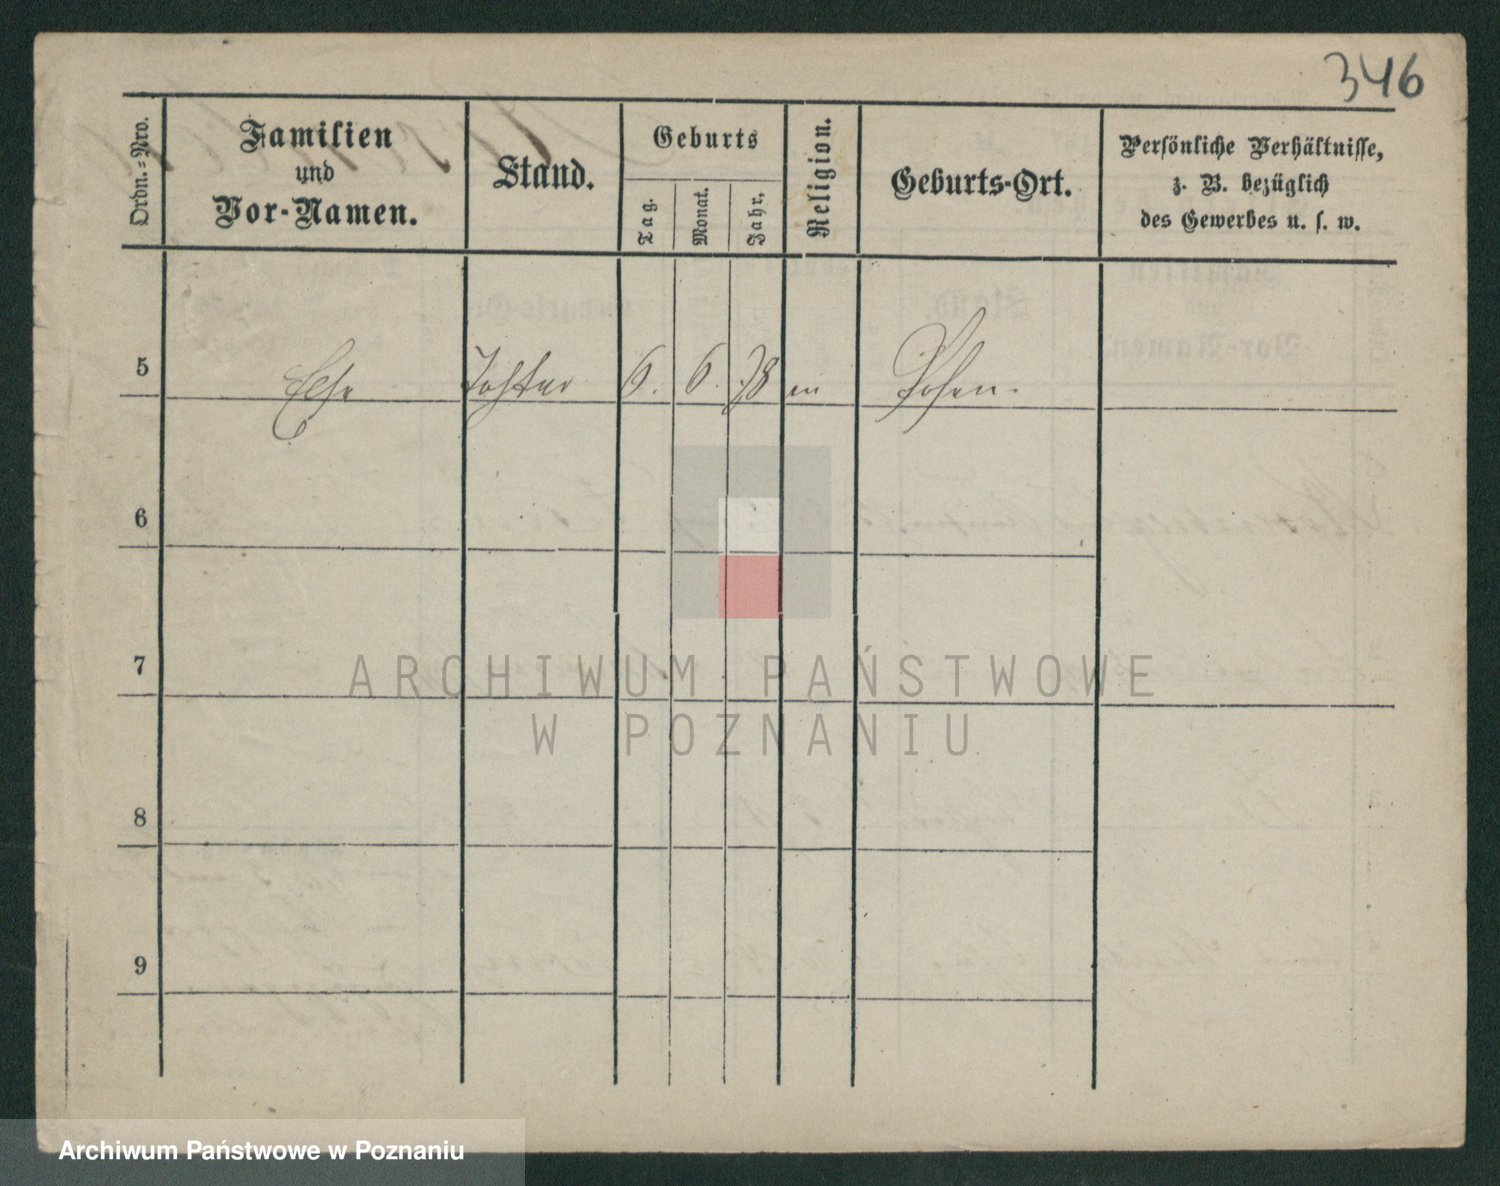 346
Ordn.-Nro.
Familien
und
Vor-Namen.
Stand.
Geburts
Tag.
Monat.
Jahr.
Religion.
Geburts-Ort.
Persönliche Verhältnisse,
z. B. bezüglich
des Gewerbes u. s. w.
5 Else Tochter 6. 6. 78 Posen.
6
7
8
9
ARCHIWUM PAŃSTWOWE
W POZNANIU
Archiwum Państwowe w Poznaniu